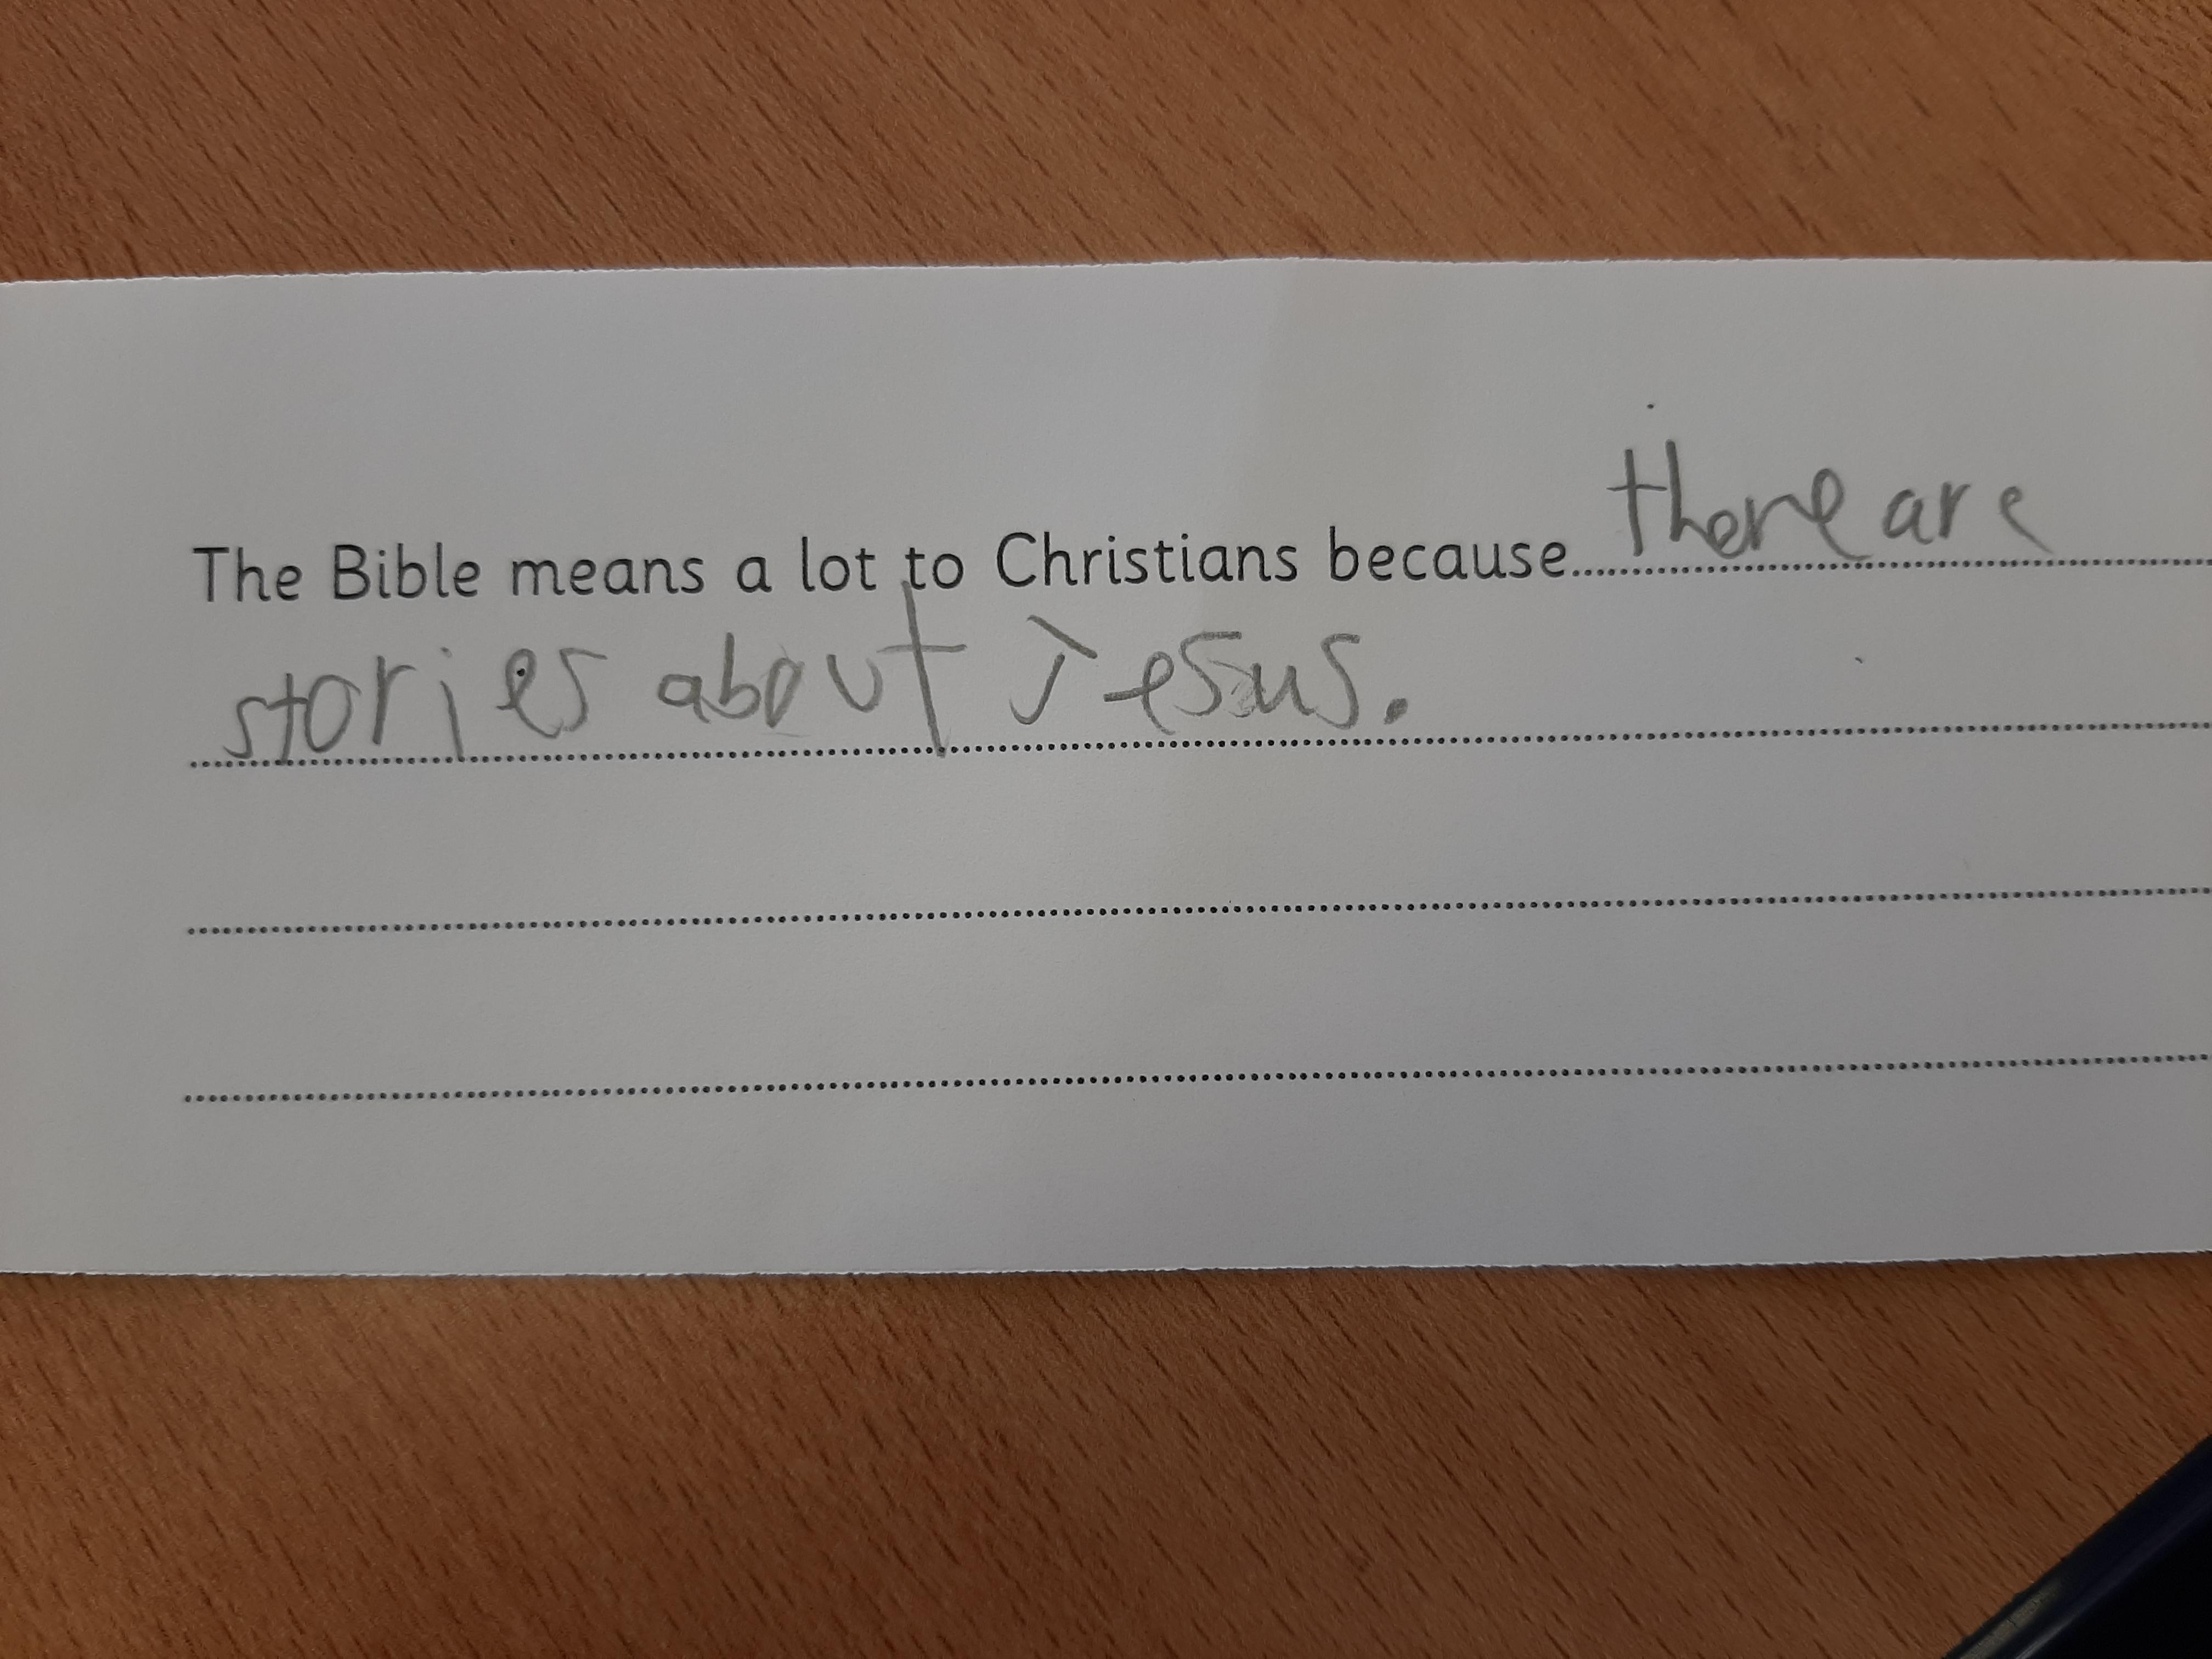 The Bible means a lot to Christians because there are
stories about Jesus.